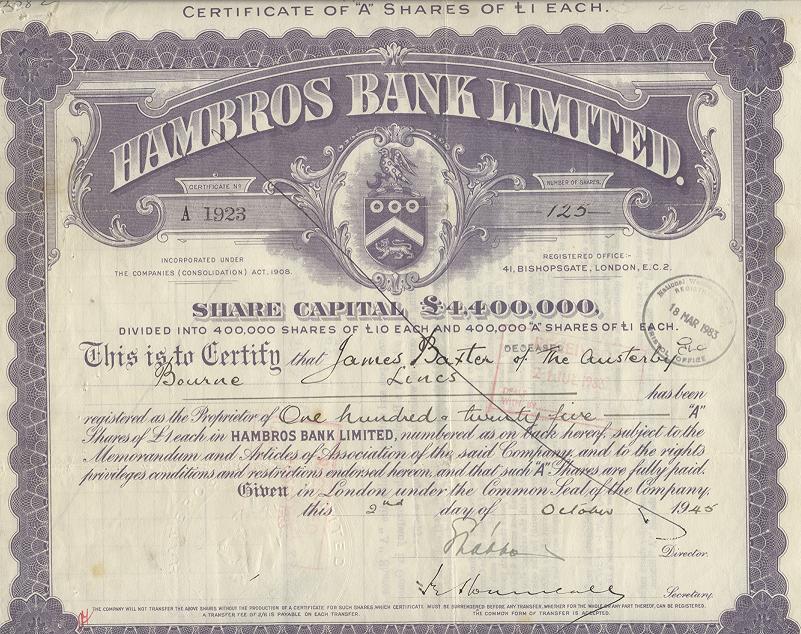 CERTIFICATE OF "A" SHARES OF £1 EACH.
HAMBROS BANK LIMITED.
CERTIFICATE No
A 1923
NUMBER OF SHARES.
125
INCORPORATED UNDER
THE COMPANIES (CONSOLIDATION) ACT, 1908.
REGISTERED OFFICE:-
41, BISHOPSGATE, LONDON, E.C.2.
SHARE CAPITAL, £4,400,000,
DIVIDED INTO 400,000 SHARES OF £10 EACH AND 400,000 "A" SHARES OF £1 EACH.
18 MAR 1983
OFFICE
DECEASED
This is to Certify that James Baxter of The Austerby
Bourne Lincs
has been
registered as the Proprietor of One hundred & twenty five "A"
Shares of £1 each in HAMBROS BANK LIMITED, numbered as on back hereof, subject to the
Memorandum and Articles of Association of the said Company, and to the rights
privileges conditions and restrictions endorsed hereon, and that such "A" Shares are fully paid.
Given in London under the Common Seal of the Company,
this 2nd day of October 1945
Director.
Secretary.
THE COMPANY WILL NOT TRANSFER THE ABOVE SHARES WITHOUT THE PRODUCTION OF A CERTIFICATE FOR SUCH SHARES, WHICH CERTIFICATE MUST BE SURRENDERED BEFORE ANY TRANSFER, WHETHER FOR THE WHOLE OR ANY PART THEREOF, CAN BE REGISTERED.
A TRANSFER FEE OF 2/6 IS PAYABLE ON EACH TRANSFER. THE COMMON FORM OF TRANSFER IS ACCEPTED.